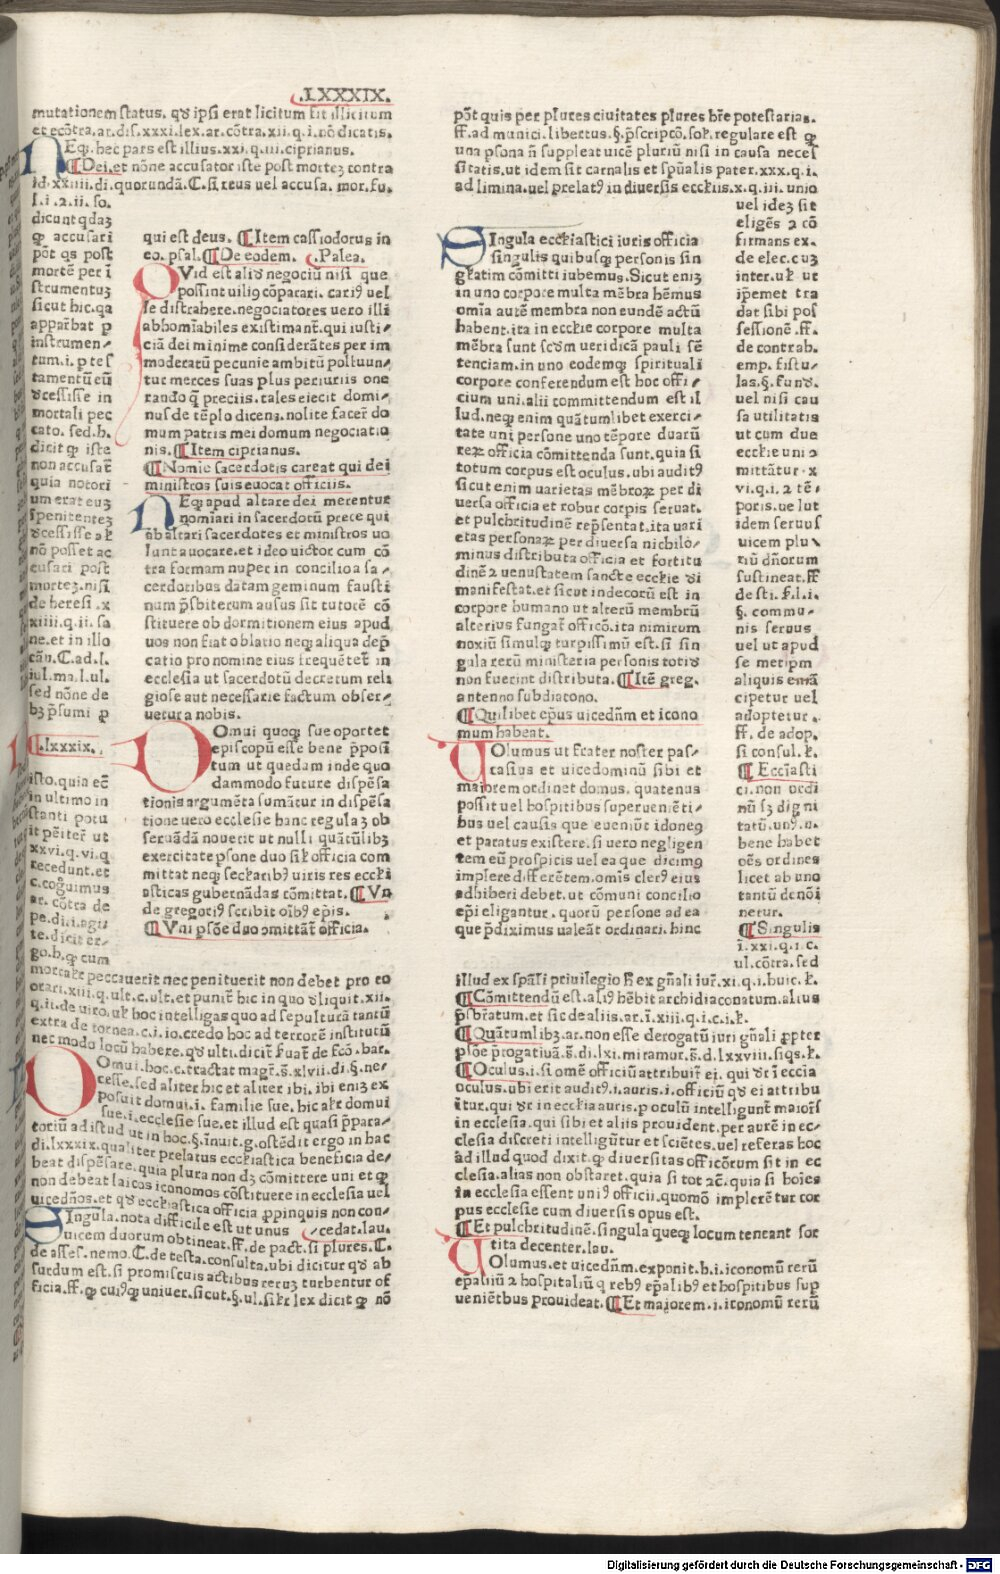 .LXXXIX.
mutationem status. qd ipsi erat licitum fit illicitum
et ecõtra. ar. dis. xxxi. lex. ar. cõtra. xii. q. i. nõ dicatis.
NEq3. hec pars est illius. xxi. q. iii. ciprianus.
¶ Dei. et nõne accusator iste post mortez contra
id. xxiiii. di. quorundã. C. si reus uel accusa. mor. fu.
l. i. 2. ii. so.
dicunt qdaz
accusari
põt qs post
mortẽ per ĩ
strumentuz
sicut hic. qa
apparbat p
instrumen⸗
tum. i. p tes
tamentũ eũ
decessisse in
mortali pec
cato. sed. h.
dicit iste
non accusat
quia notori
um erat euz
spenitentez
decessisse
nõ posset ac
cusari post
mortez. nisi
de heresi. x
xiiii. q. ii. sa
ne. et in illo
cãu. C. ad. l.
iul. ma. l. ul.
sed nõne de
b3 p̃sumi
¶ .lxxxix.
isto. quia ec̃
in ultimo in
stanti potu
it pẽiter̃ ut
xxvi. q. vi. q
recedunt. et
c. coguimus
ar. cõtra de
pe. di. i. agi⸗
te. dicit er⸗
go. h. cum
qui est deus. ¶ Item cassiodorus in
eo. psal. ¶ De eodem. ¶ .Palea.
QVid est aliđ negociũ nisi que
possint uiliꝯ cõparari. cariꝯ uel
le distrahere. negociatores uero illi
abhomĩabiles existimant̃. qui iusti⸗
ciã dei minime considerãtes per im
moderatũ pecunie ambitũ polluun⸗
tur merces suas plus periuriis one
rando q3 preciis. tales eiecit domi⸗
nus de tẽplo dicens. nolite facer̃ do
mum patris mei domum negociatio
nis. ¶ Item ciprianus.
¶ Nomie sacerdotis careat qui dei
ministros suis euocat officiis.
NEq3 apud altare dei merentur
nomĩari in sacerdotũ prece qui
ab altari sacerdotes et ministros uo
lunt auocare. et ideo uictor cum cõ
tra formam nuper in concilio a sa⸗
cerdotibus datam geminum fausti
num p̃sbiterum ausus sit tutorẽ cõ
stituere ob dormitionem eius apud
uos non fiat oblatio neq3 aliqua dep̃
catio pro nomine eius frequẽtet̃ in
ecclesia ut sacerdotũ decretum reli
giose aut necessarie factum obser⸗
uetur a nobis.
OOmni quoq3 sue oportet
episcopũ esse bene p̃posi
tum ut quedam inde quo
dammodo future dispẽsa
tionis argumẽta sumãtur in dispẽsa
tione uero ecclesie hanc regulaz ob
seruãdã nouerit ut nulli quãtũlib3
exercitate p̃sone duo sil̃ officia com
mittat neq3 seclarib9 uiris res eccli
asticas gubernãdas cõmittat. ¶ Vn
de gregoriꝯ scribit oĩbꝯ ep̃is.
¶ Vni p̃sõe duo ꝯmittãt̃ officia.
mortali peccauerit nec penituerit non debet pro eo
orari. xiii. q. ult. c. ult. et punit̃ hic in quo deliquit. xii.
q. ii. de uiro. ul̃ hoc intelligas quo ad sepulturã tantũ
extra de tornea. c. i. io. credo hoc ad terrorẽ institutũ
nec modo locũ habere. qd ulti. dicit̃ fuat̃ de fcõ. bar.
OOmui. hoc. c. tractat magr̃. s̃. xlvii. di. §. ne⸗
cesse. sed aliter hic et aliter ibi. ibi eniz ex
posuit domui. i. familie sue. hic at̃ domui
sue. i. ecclesie sue. et illud est quasi p̃para⸗
toriũ ad istud ut in hoc. §. ĩnuit. g. ostẽdit ergo in hac
di. lxxxix. qualiter prelatus eccliastica beneficia de⸗
beat dispẽsare. quia plura non d3 cõmittere uni et
non debeat laicos iconomos cõstituere in ecclesia uel
uicedños. et qd eccliastica officia ꝓpinquis non con⸗
SIngula. nota difficile est ut unus ¶cedat. lau.
uicem duorum obtineat. ff. de pact. si plures. C.
de asses. nemo. C. de testa. consulta. ubi dicitur qd ab
surdum est. si promiscuis actibus reruz turbentur of
ficia. ff. cuiꝯq3 uniuer. sicut. §. ul. sil̃r lex dicit nõ
põt quis per plures ciuitates plures hr̃e potestarias.
ff. ad munici. libertus. §. p̃scripcõ. sol̃. regulare est
una psona ñ suppleat uicẽ pluriũ nisi in causa neces
sitatis. ut idem sit carnalis et spũalis pater. xxx. q. i.
ad limina. uel prelatꝯ in diuersis eccliis. x. q. iii. unio
SIngula eccliastici iuris officia
singulis quibusq3 personis sin
gl̃atim cõmitti iubemus. Sicut eniz
in uno corpore multa mẽbra hẽmus
omĩa autẽ membra non eundẽ actũ
habent. ita in ecclie corpore multa
mẽbra sunt scdm ueridicã pauli sẽ
tenciam. in uno eodemq3 spirituali
corpore conferendum est hoc offi⸗
cium uni. alii committendum est il
lud. neq3 enim quãtumlibet exerci⸗
tate uni persone uno tẽpore duarũ
reꝝ officia cõmittenda sunt. quia si
totum corpus est oculus. ubi auditꝯ
sicut enim uarietas mẽbroꝝ per di
uersa officia et robur corpis seruat.
et pulchritudinẽ rep̃sentat. ita uari
etas personaꝝ per diuersa nichilo⸗
minus distributa officia et fortitu
dinẽ 2 uenustatem sancte ecclie di
manifestat. et sicut indecorũ est in
corpore humano ut alterũ membrũ
alterius fungat̃ officõ. ita nimirum
noxiũ simulq3 turpissimũ est. si sin
gula rerũ ministeria personis totiđ
non fuerint distributa. ¶ Itẽ greg.
antenno subdiacono.
¶ Quilibet ep̃us uicedñm et icono
mum habeat.
VOlumus ut frater noster pas⸗
casius et uicedominũ sibi et
maiorem ordinet domus. quatenus
possit uel hospitibus superueniẽti⸗
bus uel causis que eueniũt idoneꝯ
et paratus existere. si uero negligen
tem eũ prospicis uel ea que dicimꝯ
implere differẽtem. omĩs clerꝯ eius
adhiberi debet. ut cõmuni concilio
ep̃i eligantur. quorũ persone ad ea
que p̃diximus ualeãt ordinari. hinc
uel idez sit
eligẽs 2 cõ
firmans ex.
de elec. cuz
inter. ul̃ ut
ip̃emet tra
dat sibi pos
sessionẽ. ff.
de contrab.
emp. fistu⸗
las. §. fund.
uel nisi cau
sa utilitatis
ut cum due
ecclie uni ꝯ
mittãtur. x
vi. q. i. 2 tẽ⸗
poris. ue lut
idem seruus
uicem plu⸗
riũ dñorum
sustineat. ff
de sti. f̃. l. i.
§. commu⸗
nis seruus
uel ut apud
se metipm
aliquis emã
cipetur uel
adoptetur.
ff. de adop.
si consul. l̃.
¶ Ecclĩasti
ci. non ordi
nũ s3 digni
tatũ. unꝯ. n.
bene habet
oẽs ordines
licet ab uno
tantũ denõi
netur.
¶ Singulis
ĩ. xxi. q. i. c.
ul. cõtra. sed
illud ex sp̃ali priuilegio ñ ex gñali iur̃. xi. q. i. huic. l̃.
¶ Cõmittendũ est. aliꝯ hẽbit archidiaconatum. alius
p̃sbr̃atum. et sic de aliis. ar. ĩ. xiii. q. i. c. i. l̃.
¶ Quãtumlib3. ar. non esse derogatũ iuri gñali ꝓpter
p̃sõe p̃rogatiuã. s̃. di. lxi. miramur. s̃. d. lxxviii. siqs. l̃.
¶ Oculus. i. si omẽ officiũ attribuit̃ ei. qui dr̃ ĩ eccia
oculus. ubi erit auditꝯ. i. auris. i. officiũ qd ei attribu
ĩtur. qui dr̃ in ecclia auris. p oculũ intelligunt̃ maiores
in ecclesia. qui sibi et aliis prouident. per aurẽ in ec⸗
clesia discreti intelligũtur et sciẽtes. uel referas hoc
ad illud quod dixit. diuersitas officõrum sit in ec
clesia. alias non obstaret. quia si tot 2c̃. quia si hoies
in ecclesia essent uniꝯ officii. quomõ implerẽtur cor
pus ecclesie cum diuersis opus est.
¶ Et pulchritudinẽ. singula queq3 locum teneant sor
tita decenter. lau.
VOlumus. et uicedñm. exponit. h. i. iconomũ rerũ
ep̃aliũ 2 hospitaliũ q rebꝯ ep̃alibꝯ et hospitibus sup
ueniẽtbus prouideat. ¶ Et maiorem. i. iconomũ rerũ
Digitalisierung gefördert durch die Deutsche Forschungsgemeinschaft - DFG